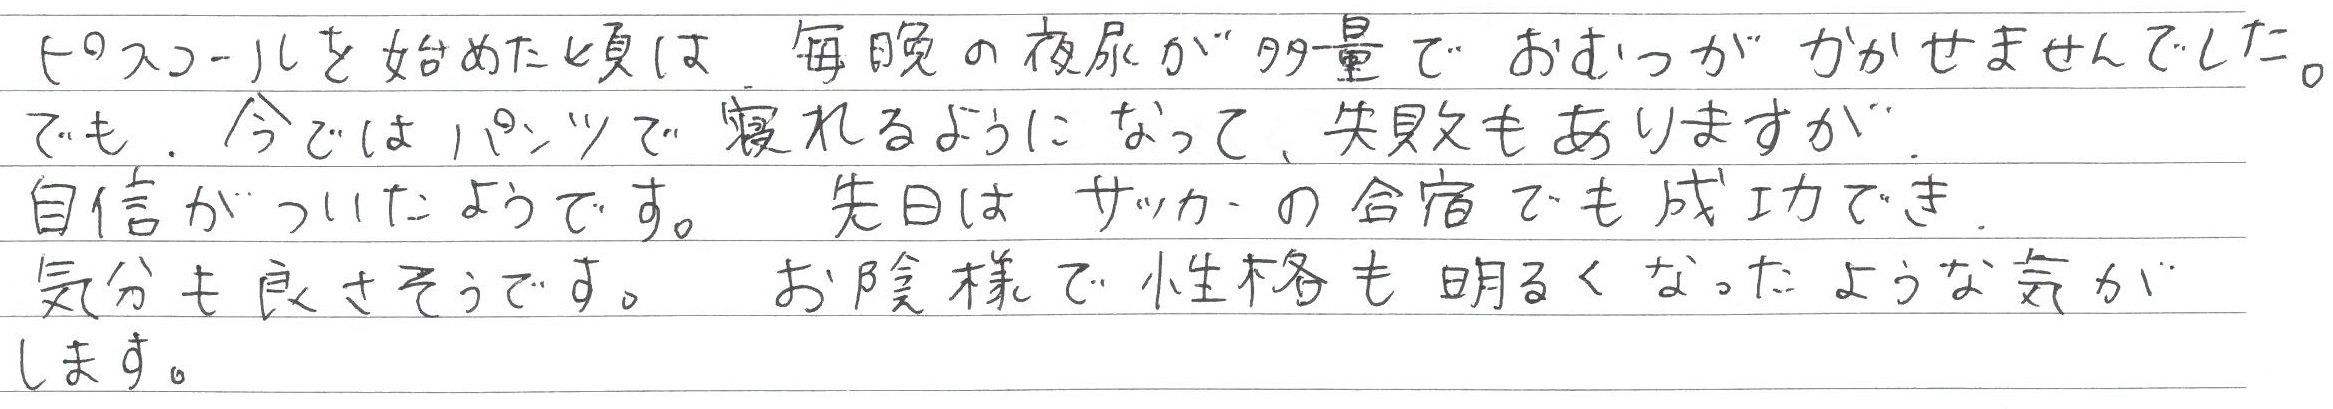 ピスコールを始めた頃は 毎晩の夜尿が多量で おむつが かかせませんでした。
でも、今ではパンツで寝れるように なって、失敗もありますが、
自信がついたようです。 先日は サッカーの合宿でも成功でき、
気分も良さそうです。 お陰様で性格も明るくなったような気が
します。